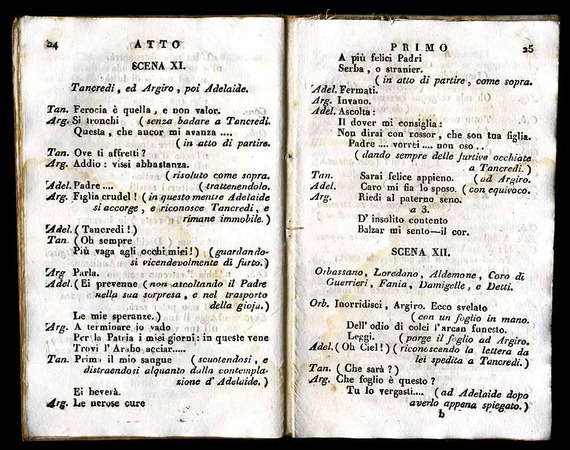 24 ATTO
SCENA XI.
Tancredi, ed Argiro, poi Adelaide.
Tan. Ferocia è quella, e non valor.
Arg. Si tronchi (senza badare a Tancredi.
Questa, che ancor mi avanza ....
(in atto di partire.
Tan. Ove ti affretti?
Arg. Addio: vissi abbastanza.
(risoluto come sopra.
Adel. Padre .... (trattenendolo.
Arg. Figlia crudel! (in questo mentre Adelaide
si accorge, e riconosce Tancredi, e
rimane immobile.)
Adel. (Tancredi!)
Tan. (Oh sempre
Più vaga agli occhi miei!) (guardando-
si vicendevolmente di furto.)
Arg. Parla.
Adel. (Ei prevenne (non ascoltando il Padre
nella sua sorpresa, e nel trasporto
della gioja.)
Le mie speranze.)
Arg. A terminare io vado
Per la Patria i miei giorni: in queste vene
Trovi l'Arabo acciar.....
Tan. Prima il mio sangue (scuotendosi, e
distraendosi alquanto dalla contempla-
zione d'Adelaide.)
Ei beverà.
Arg. Le nerose cure
PRIMO 25
A più felici Padri
Serba, o straniero.
(in atto di partire, come sopra.
Adel. Fermati.
Arg. Invano.
Adel. Ascolta:
Il dover mi consiglia:
Non dirai con rossor, che son tua figlia.
Padre .... vorrei .... non oso ..
(dando sempre delle furtive occhiate
a Tancredi.)
Tan. Sarai felice appieno. (ad Argiro.
Adel. Caro mi fia lo sposo. (con equivoco.
Arg. Riedi al paterno seno.
a 3.
D'insolito contento
Balzar mi sento—il cor.
SCENA XII.
Orbassano, Loredano, Aldemone, Coro di
Guerrieri, Fania, Damigelle, e Detti.
Orb. Inorridisci, Argiro. Ecco svelato
(con un foglio in mano.
Dell'odio di colei l'arcan funesto.
Leggi. (porge il foglio ad Argiro.
Adel. (Oh Ciel!) (riconoscendo la lettera da
lei spedita a Tancredi.)
Tan. (Che sarà?)
Arg. Che foglio è questo?
Tu lo vergasti.... (ad Adelaide dopo
averlo appena spiegato.)
b